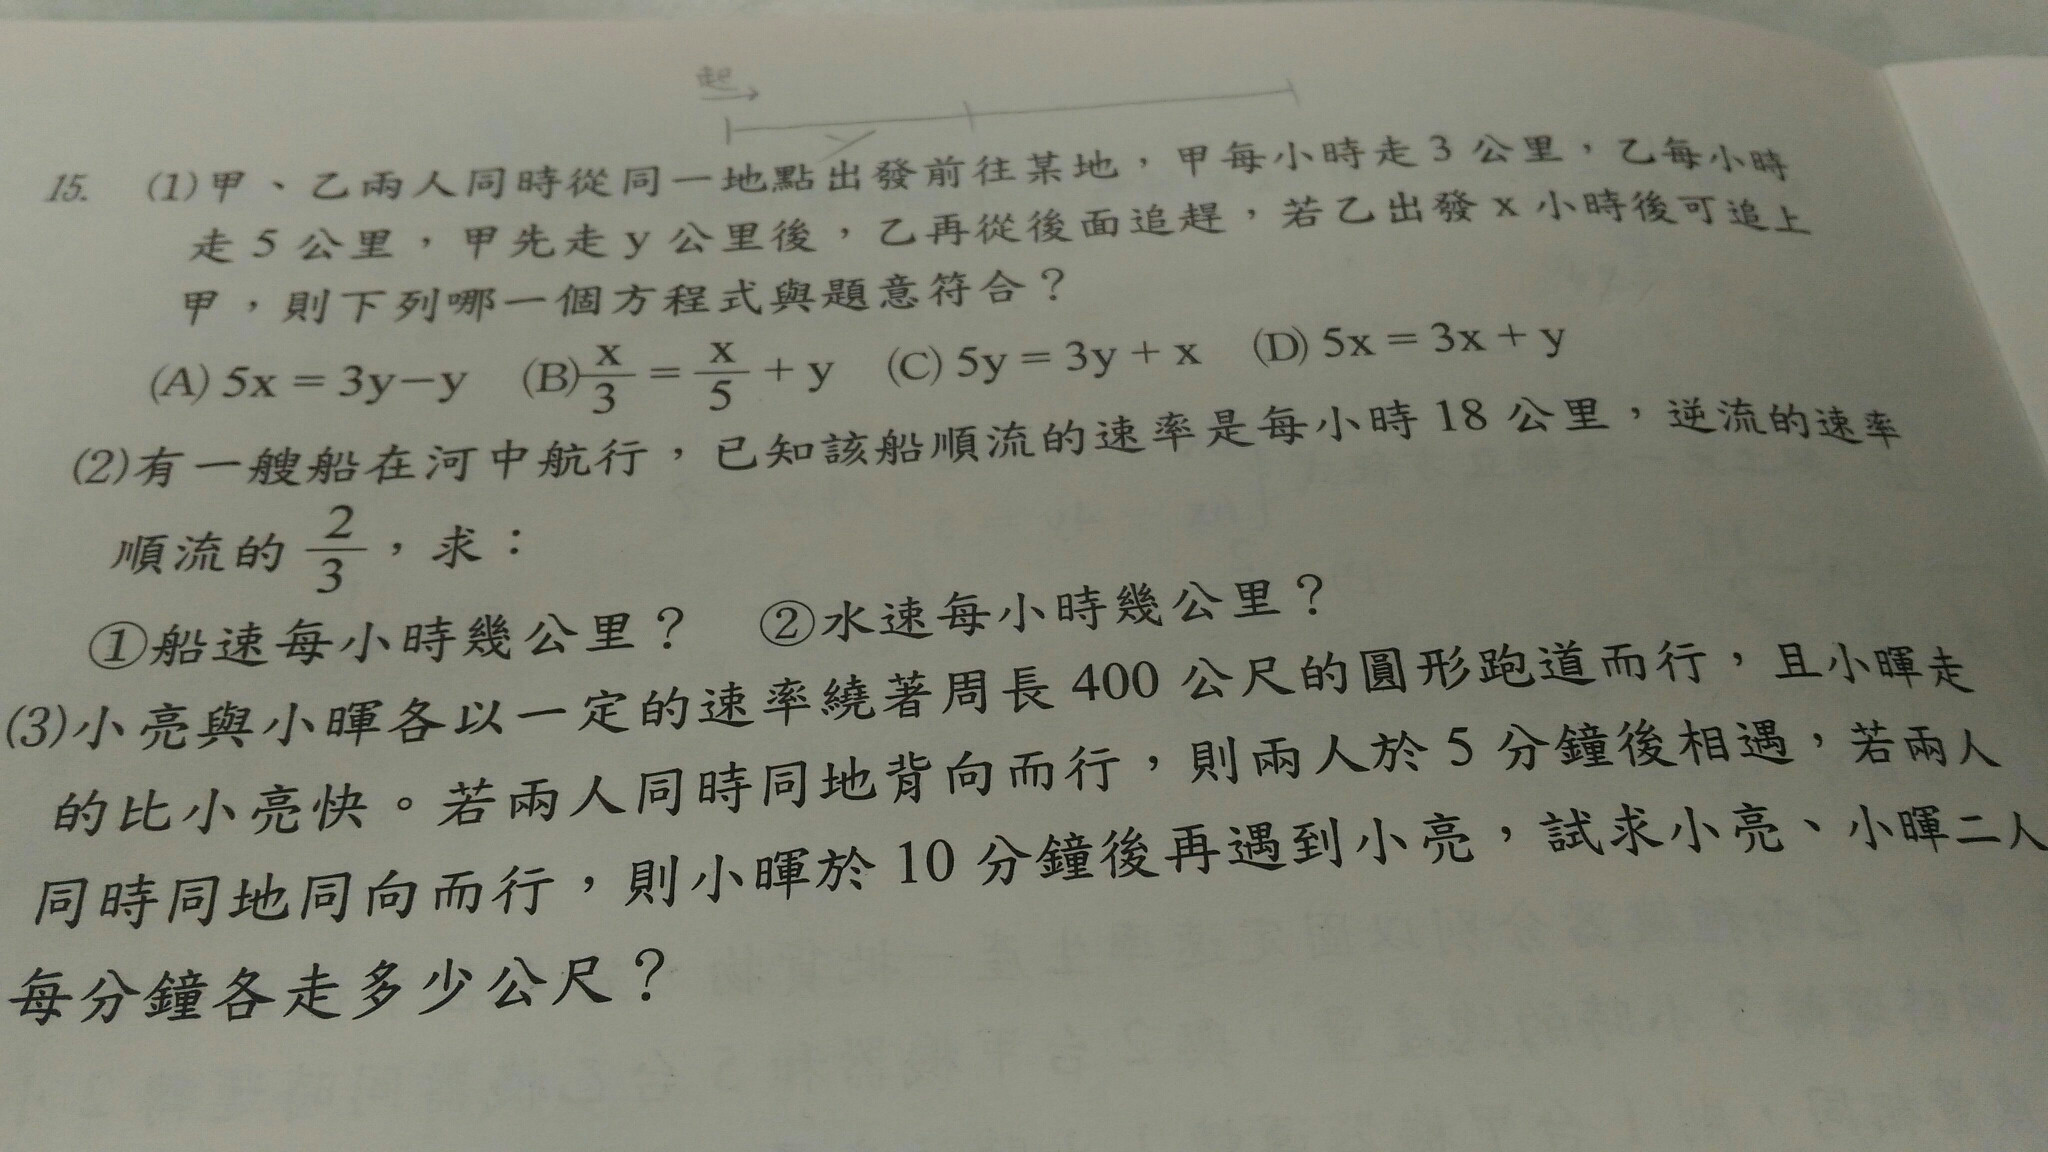 起
y
15. (1)甲、乙兩人同時從同一地點出發前往某地，甲每小時走3公里，乙每小時
走5公里，甲先走y公里後，乙再從後面追趕，若乙出發x小時後可追上
甲，則下列哪一個方程式與題意符合？
(A) 5x＝3y－y (B) x/3＝x/5＋y (C) 5y＝3y＋x (D) 5x＝3x＋y
(2)有一艘船在河中航行，已知該船順流的速率是每小時18公里，逆流的速率
順流的2/3，求：
①船速每小時幾公里？ ②水速每小時幾公里？
(3)小亮與小暉各以一定的速率繞著周長400公尺的圓形跑道而行，且小暉走
的比小亮快。若兩人同時同地背向而行，則兩人於5分鐘後相遇，若兩人
同時同地同向而行，則小暉於10分鐘後再遇到小亮，試求小亮、小暉二人
每分鐘各走多少公尺？